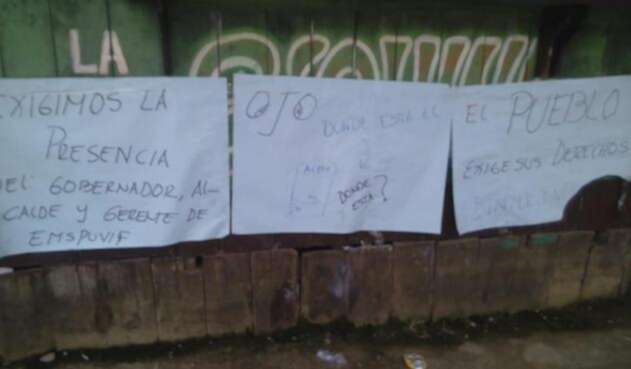 LA
EXIGIMOS LA
PRESENCIA
DEL GOBERNADOR, AL-
CALDE Y GERENTE DE
EMSPUVIF
OJO
DONDE ESTA EL
DONDE
ESTA?
EL PUEBLO
EXIGE SUS DERECHOS